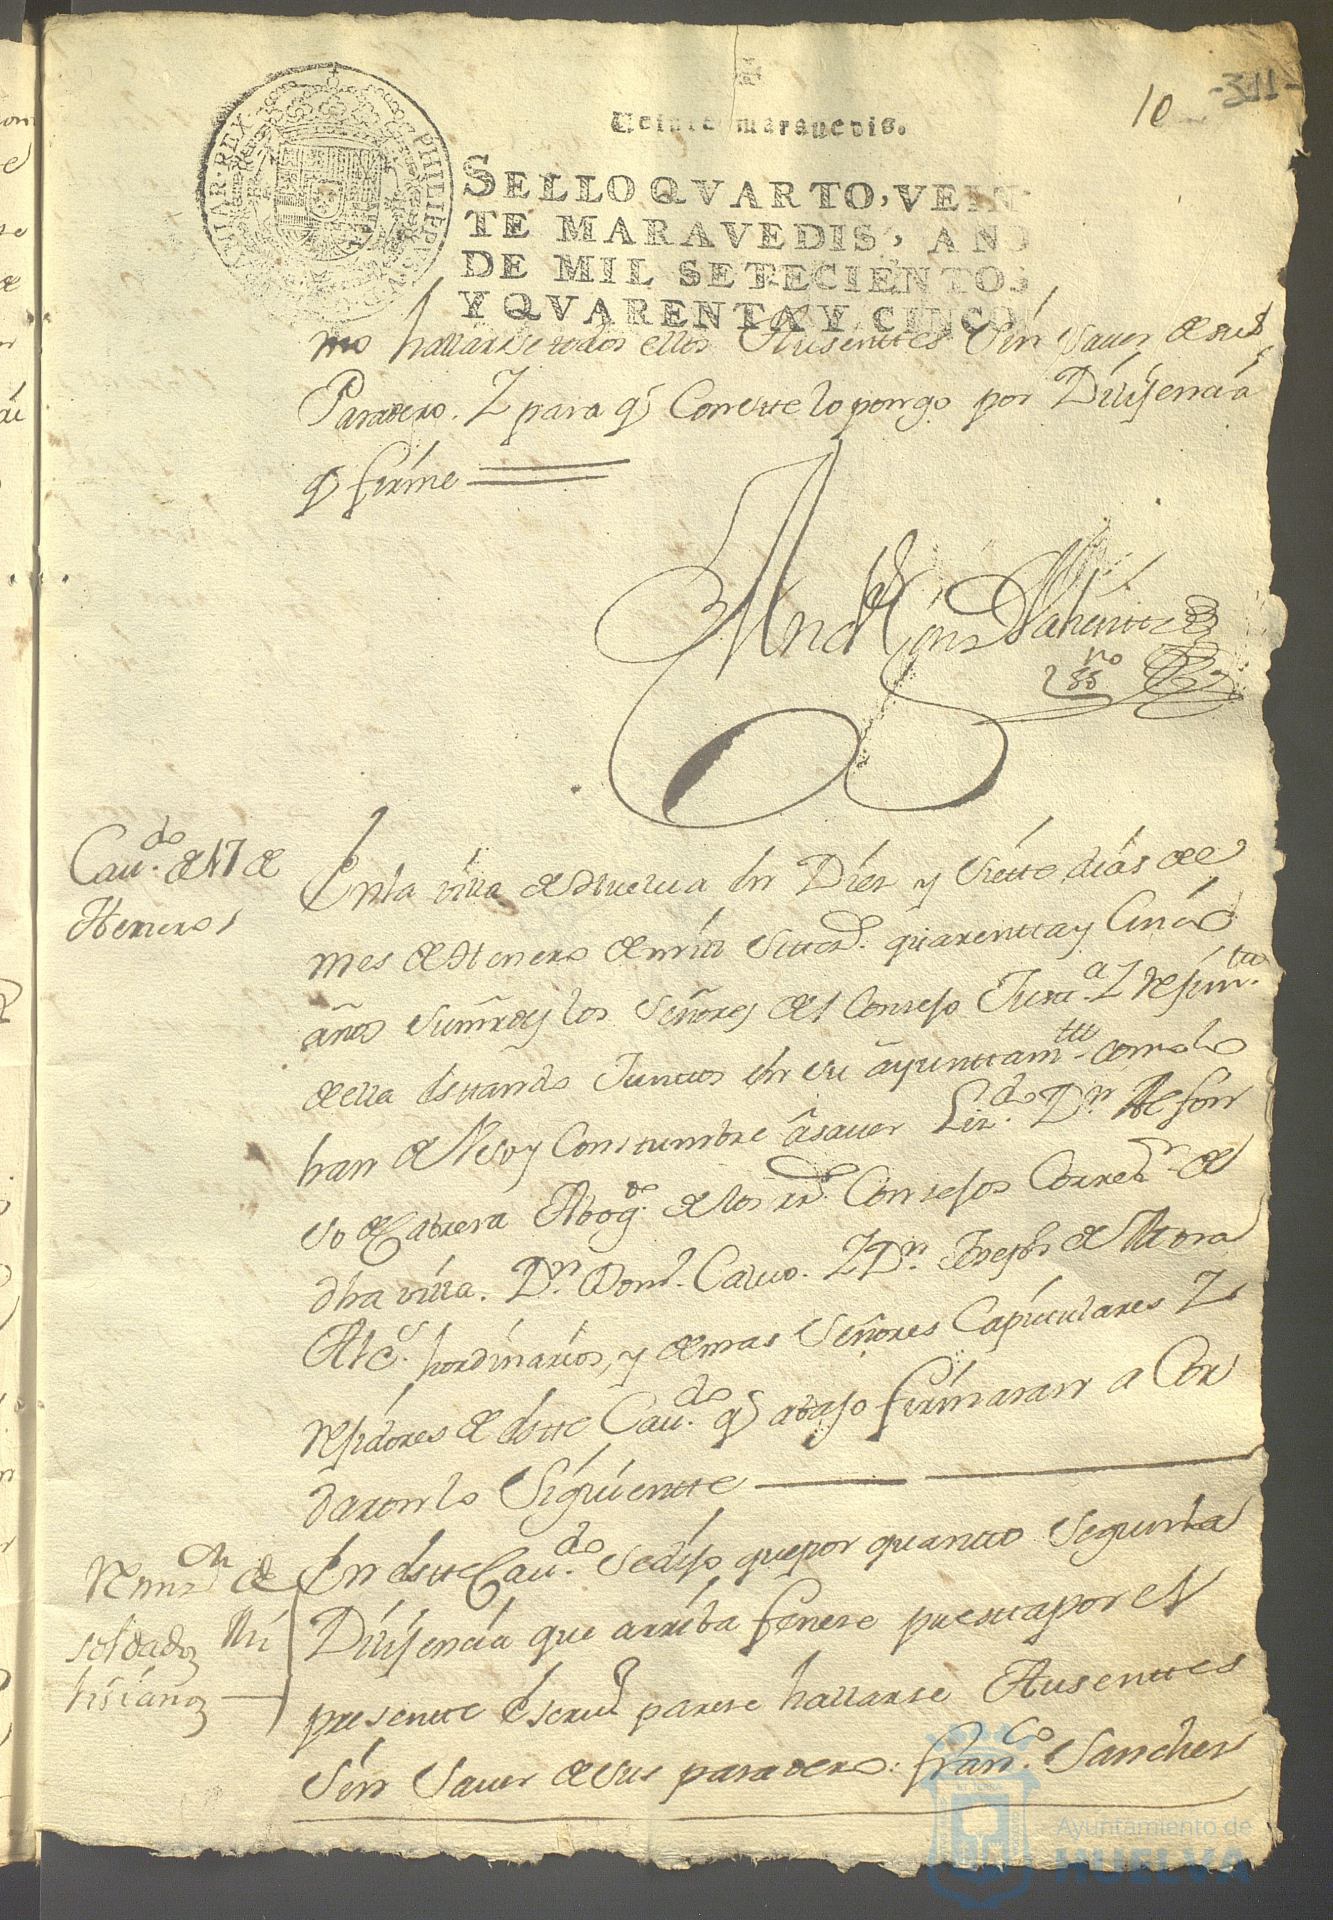 10 -311-
Veinte maravedis.
SELLO QVARTO, VEIN
TE MARAVEDIS, AÑO
DE MIL SETECIENTOS
Y QVARENTA Y CINCO
PHILIPPVS V D G
HISPANIAR REX
mo hallarse todos ellos Ausenttes Sin saver de sus
Paradero. Y para q Constte lo pongo por Dilijencia
q firme
Valientte
ssno
Cavdo. de 17 de
Henero
En la villa de Huelva en Diez y Siette dias de el
mes de Henero de mill settezs. quarentta y Cinco
años los Señores del Consejo Justa. Y Rejimtto
de ella esttando Juntos en su ayunttamtto como lo
han de Uso y Constumbre a saver Lizdo. Dn Alfon
so de Cabrera Abogdo. de los Rs. Consejos Corregr. de
dha villa. Dn. Domo. Calvo. Y Dn. Joseph de Mora
Alcs. hordinarios, y demas Señores Capitulares Y
Rejidores de estte Cavdo. q abajo firmaran a Cor
daron lo Siguientte
Remn. de
soldados Mi
lisianos
En estte Cavdo. se dijo que por quantto Segun la
Dilijencia que arriba fenese puesta por el
presentte Escrivo parese hallarse Ausenttes
Sin Saver de sus paradero franco. Sanches
Ayuntamiento de
HUELVA